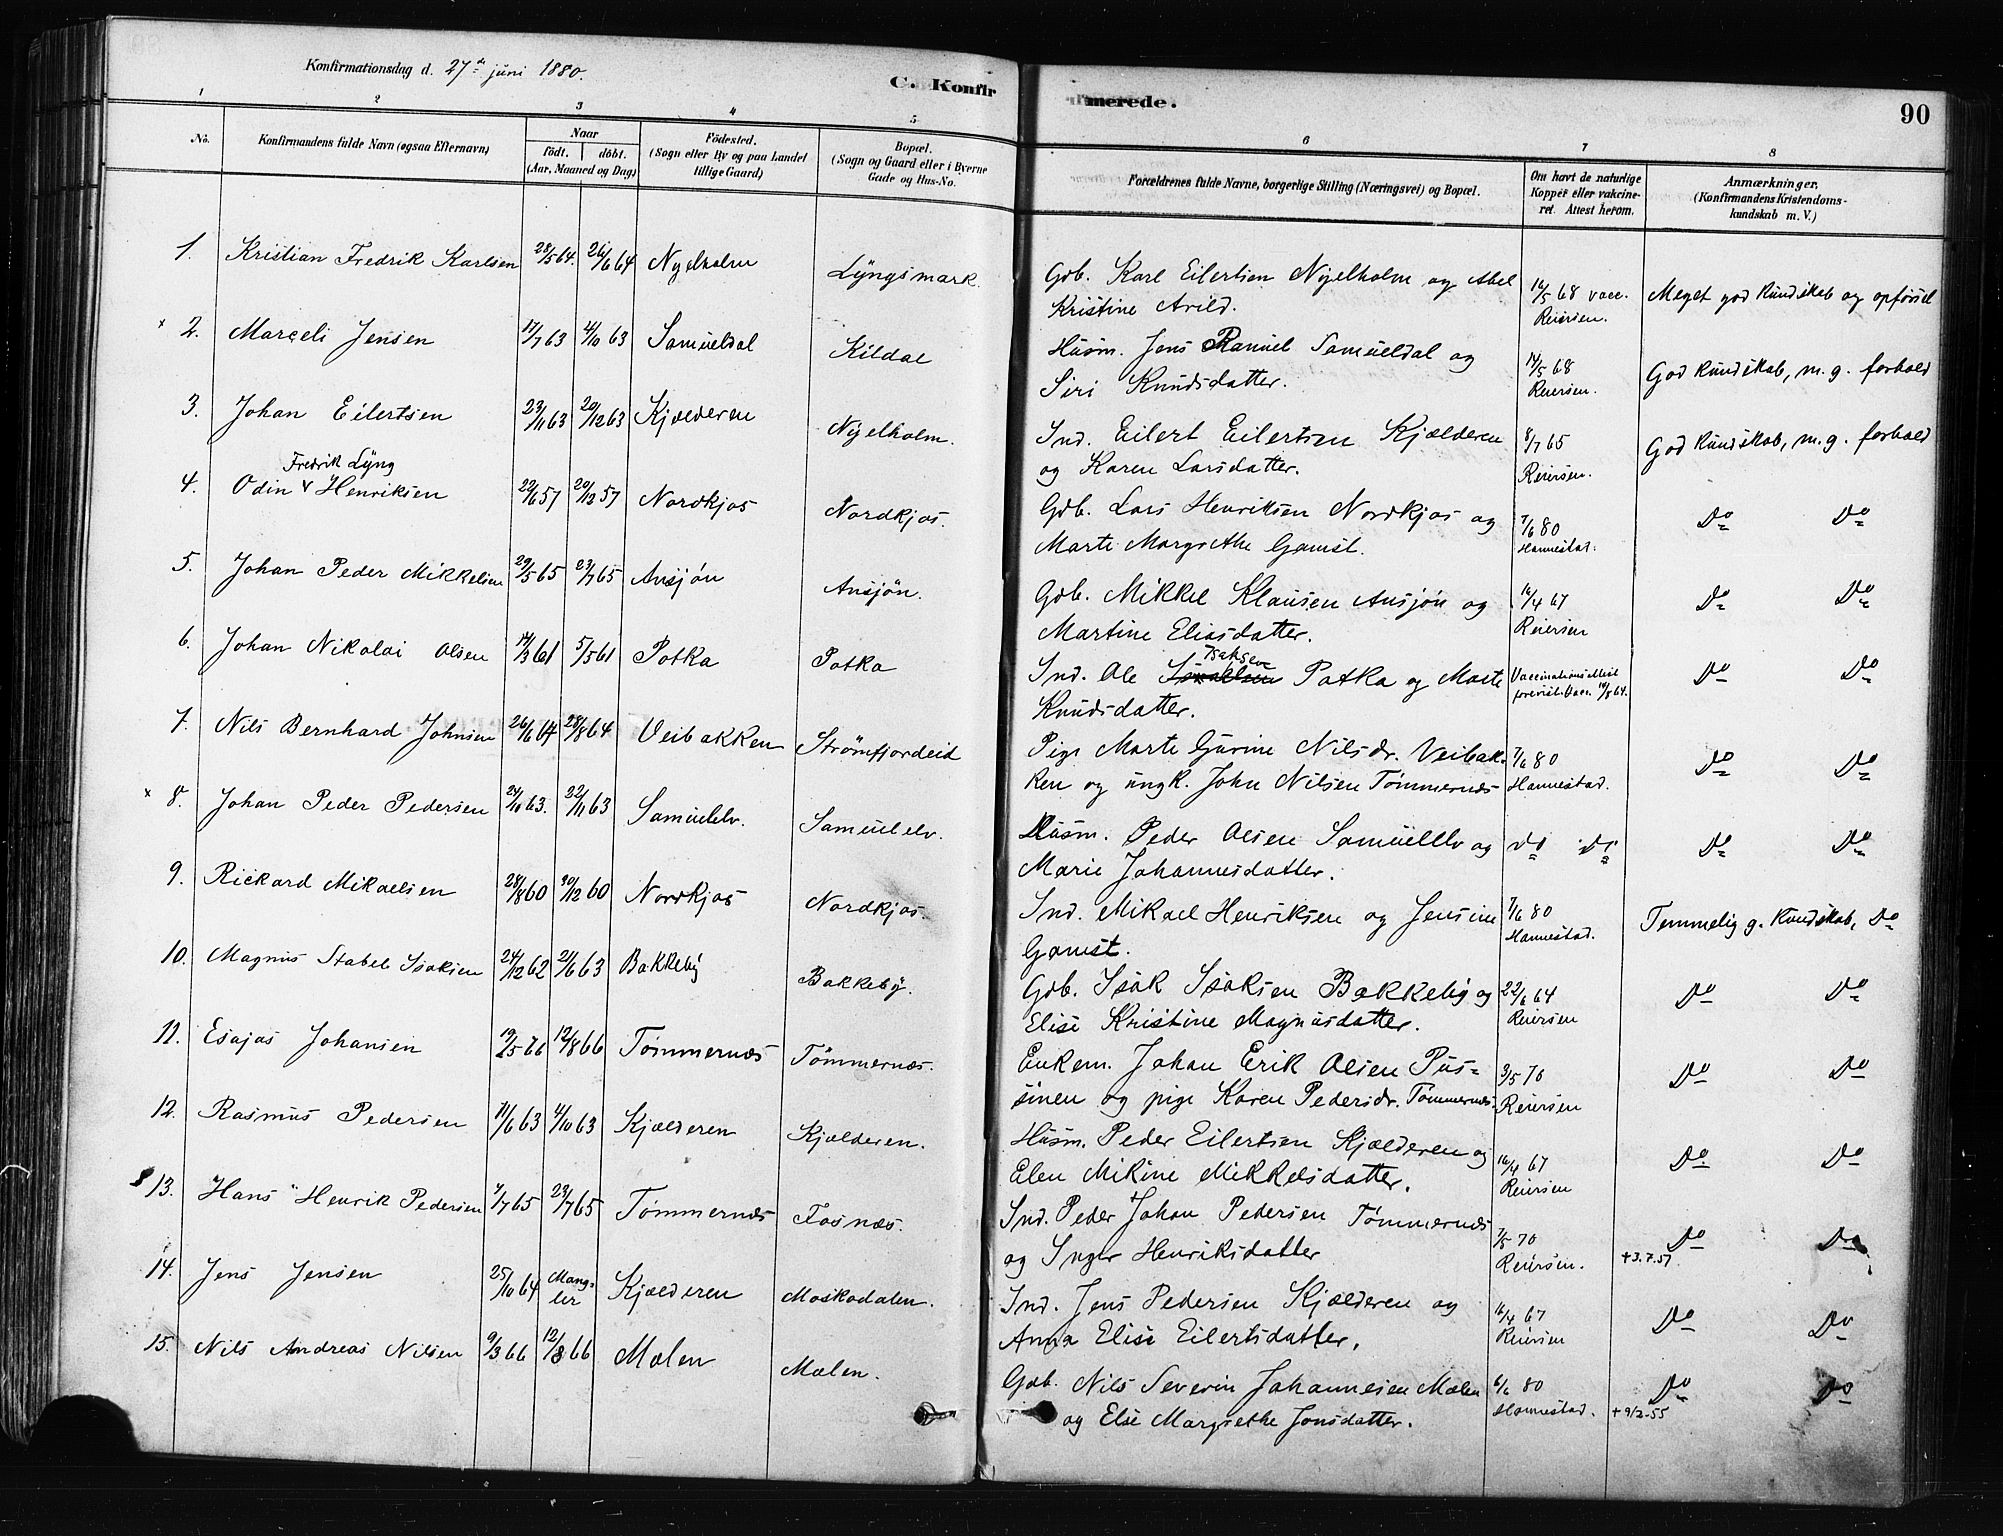 Konfirmationsdag d. 27de juni 1880.
C. Konfirmerede.
90
1 2 3 4 5 6 7 8
No.
Konfirmandens fulde Navn (ogsaa Efternavn)
Naar
födt. döbt.
(Aar, Maaned og Dag)
Födested.
(Sogn eller By og paa Landet
tillige Gaard)
Bopæl.
(Sogn og Gaard eller i Byerne
Gade og Hus-No.
Forældrenes fulde Navne, borgerlige Stilling (Næringsvei) og Bopæl.
Om havt de naturlige
Kopper eller vakcine-
ret. Attest herom.
Anmærkninger.
(Konfirmandens Kristendoms-
kundskab m. V.)
1. Kristian Fredrik Karlsen 28/5 64. 26/6 64 Nyelholm Lyngsmark.
Gdb. Karl Eilertsen Nyelholm og Abel
Kristine Arild.
14/5 68 vacc.
Reiersen.
Meget god kundskab og opførsel
x 2. Marceli Jensen 17/7 63 4/10 63 Samueldal Kildal
Husm. Jens Ranuel Samueldal og
Siri Knudsdatter.
14/5 68
Reiersen.
God kundskab, m. g. forhold
3. Johan Eilertsen 23/11 63 20/12 63 Kjælderen Nyelholm.
Ind. Eilert Eilertsen Kjælderen
og Karen Larsdatter.
8/7 65
Reiersen.
God kundskab, m. g. forhold
Fredrik Lyng
4. Odin v Henriksen 22/6 57 20/12 57 Nordkjos Nordkjos.
Gdb. Lars Henriksen Nordkjos og
Marte Margrethe Gamst.
7/6 80
Hannestad.
Do Do
5. Johan Peder Mikkelsen 29/5 65 23/7 65 Ansjøn Ansjøn.
Gdb. Mikkel Klausen Ansjøn og
Martine Eliasdatter.
16/4 67
Reiersen
Do Do
6. Johan Nikolai Olsen 14/3 61 5/5 61 Potka Potka
Isaksen
Ind. Ole Potka og Marte
Knudsdatter.
Vaccinationsattest
forevist. Vacc. 14/8 64.
Do Do
7. Nils Bernhard Johnsen 26/6 64 28/8 64 Veibakken Strømfjordeid
Pige Marte Gurine Nilsdr. Veibak-
ken og ungk. John Nilsen Tømmernæs
7/6 80
Hannestad.
Do Do
x 8. Johan Peder Pedersen 24/10 63. 22/11 63 Samuelelv. Samuelelv.
Husm. Peder Olsen Samuelelv og
Marie Johannesdatter.
Do Do
Do Do
9. Rickard Mikaelsen 28/8 60 30/12 60 Nordkjos Nordkjos.
Ind. Mikael Henriksen og Jensine
Gamst.
7/6 80
Hannestad.
Temmelig g. kundskab, Do
10. Magnus Stabel Isaksen 24/12 62 21/6 63 Bakkeby Bakkeby.
Gdb. Isak Isaksen Bakkeby og
Elise Kristine Magnusdatter.
22/6 64
Reiersen
Do Do
11. Esajas Johansen 19/5 66 12/8 66 Tømmernæs Tømmernæs.
Enkem. Johan Erik Olsen Pus-
sinen og pige Karen Pedersdr. Tømmernæs.
3/5 70
Reiersen
Do Do
12. Rasmus Pedersen 11/6 63 4/10 63 Kjælderen Kjælderen.
Husm. Peder Eilertsen Kjælderen og
Elen Mikine Mikkelsdatter.
16/4 67
Reiersen
Do Do
13. Hans Henrik Pedersen 4/7 65 23/7 65 Tømmernæs Fosnæs.
Ind. Peder Johan Pedersen Tømmernæs
og Inger Henriksdatter
7/5 70
Reiersen.
+3.7.57
Do Do
14. Jens Jensen 25/10 64 Mang-
ler Kjælderen Moskodalen.
Ind. Jens Pedersen Kjælderen og
Anna Elise Eilertsdatter.
16/4 67
Reiersen
Do Do
15. Nils Andreas Nilsen 9/3 66 12/8 66 Mælen Mælen.
Gdb. Nils Severin Johannesen Mælen
og Else Margrethe Jonsdatter.
6/6 80
Hannestad.
+9/2-55
Do Do